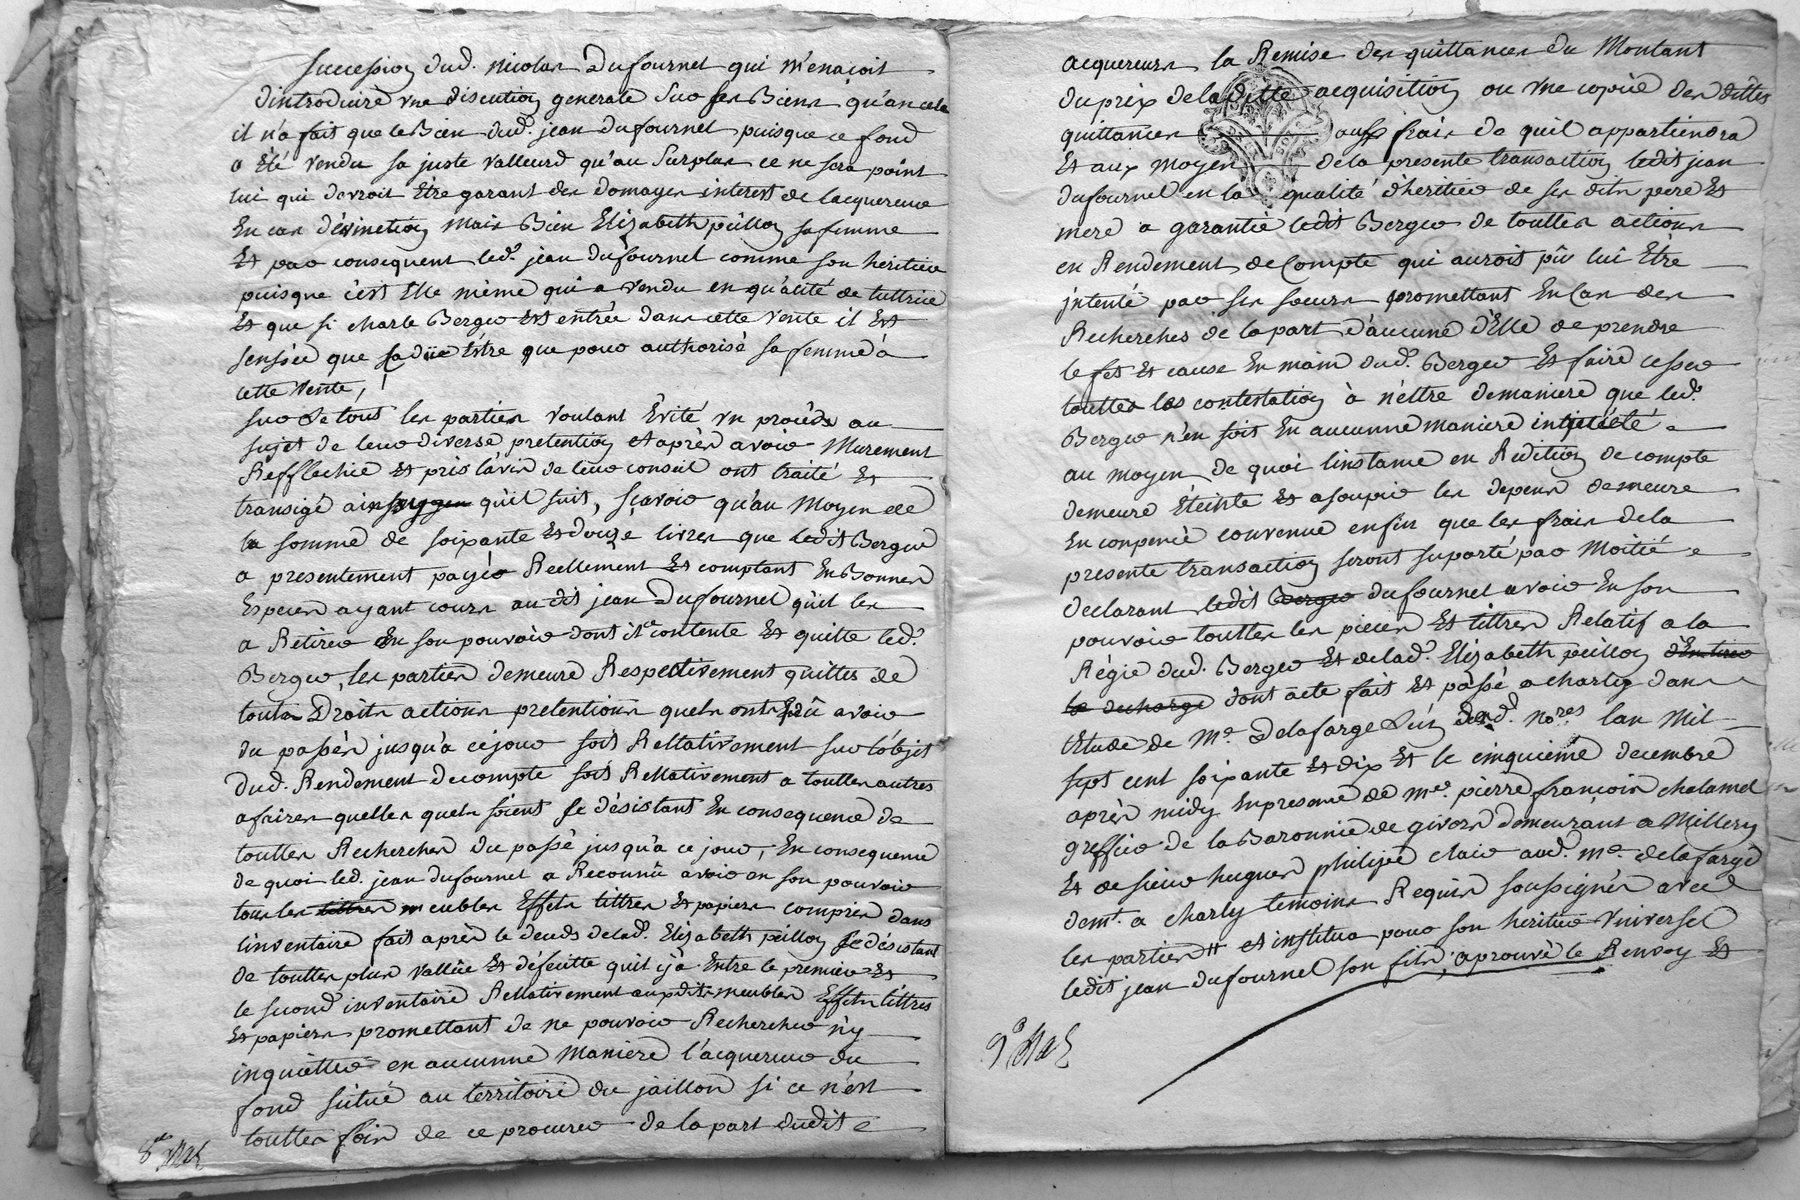 succession dud. nicolas Dufournel qui m'enaçoit
dintroduire une discution generale Sur ses Biens qu'en cela
il n'a fait que le Bien dud. jean dufournel puisque ce fond
a Eté vendu sa juste valleurd qu'au Surplus ce ne sera point
lui qui devroit Etre garant des domages interest de lacquereur
En cas d'évinction mais Bien Elizabeth peillon sa femme
Et par consequent led. jean dufournel comme son heritier
puisque c'est Elle même qui a vendu en qualité de tuttrice
Et que si charle Berger Est entrée dans cette vente il Est
sensée que Etre que pour authorisé sa femme à
cette vente,
sur Le tout les parties voulant Evité un procéds au
sujet de leur diverse pretention et après avoir Murement
Refflechie Et pris lávis de leur conseil ont traité Et
transigé ainsy qu'il suit, sçavoir qu'au Moyen de
la somme de soixante Et douze livres que ledit Berger
a presentement payér Reellement Et comptant En Bonnes
Especes ayant cours au dit jean Dufournel qu'il les
a Retirer En son pouvoir dont il se contente Et quitte led.
Berger, les parties demeure Respectivement quittes de
toutes Droits actions pretentions quels ont pû avoir
du passés jusqu'a cejour soit Rellativement sur l'objet
dud. Rendement de compte soit Rellativement a touttes autres
afaires quelles quels soient se désistant En consequence de
touttes Recherches du passé jusqu'à ce jour, En consequence
de quoi led. jean dufournel a Reconnû avoir en son pouvoir
tous les tittres meubles Effets tittres Et papiers compris dans
linventaire fait après le deceds delad. Elizabeth peillon se désistant
de touttes plus vallüe Et défecitte quil y'a Entre le premier Et
le second inventaire Rellativement auxdits meubles Effets tittres
Et papiers promettant de ne pouvoir Rechercher n'y
inquietter en aucunne Maniere l'acquereur du
fond situé au territoire du jaillon si ce n'est
touttes fois de ce procurer de la part dudit
8e
acquereurs la Remise des quittances du Montant
du prix de la ditte acquisition ou une copie des dittes
quittances aux frais de quil appartiendra
Et aux moyen de la presente transaction ledit jean
dufournel en la qualité d'heritier de ses dits pere Et
mere a garantie ledit Berger de touttes actions
en Rendement de Compte qui auroit pû lui Etre
jntenté par ses soeurs promettant En Cas des
Recherches de la part d'aucune d'Elle de prendre
le fet Et cause En main dud. Berger Et faire cesser
touttes les contestation à n'éttre demaniere que led.
Berger n'en soit En aucunne maniere inquiété
au moyen de quoi linstance en Redition de compte
demeure Eteinte Et asoupie les depens demeure
En conpencé convenue enfin que les frais de la
presente transaction seront suporté par Moitié
declarant ledit Berger dufournel avoir En son
pouvoir touttes les pieces Et tittres Relatif a la
Régie dud. Berger Et delad. Elizabeth peillon
la decharge dont acte fait Et pássé a charly dans
letude de Me. Delafarge Lún desd. Nores lan Mil
sept cent soixante Et dix Et le cinquieme decembre
après midy En presence de me. pierre françois chalamel
greffier de la Baronnie de givors demeurant a Millery
Et de sieur hugues philipe clair aud. me. delafarge
demt. a charly temoins Requis soussignés avec
les parties # et institua pour son heritier universel
ledit jean dufournel son fils, aprouvé le Renvoy Et
9e